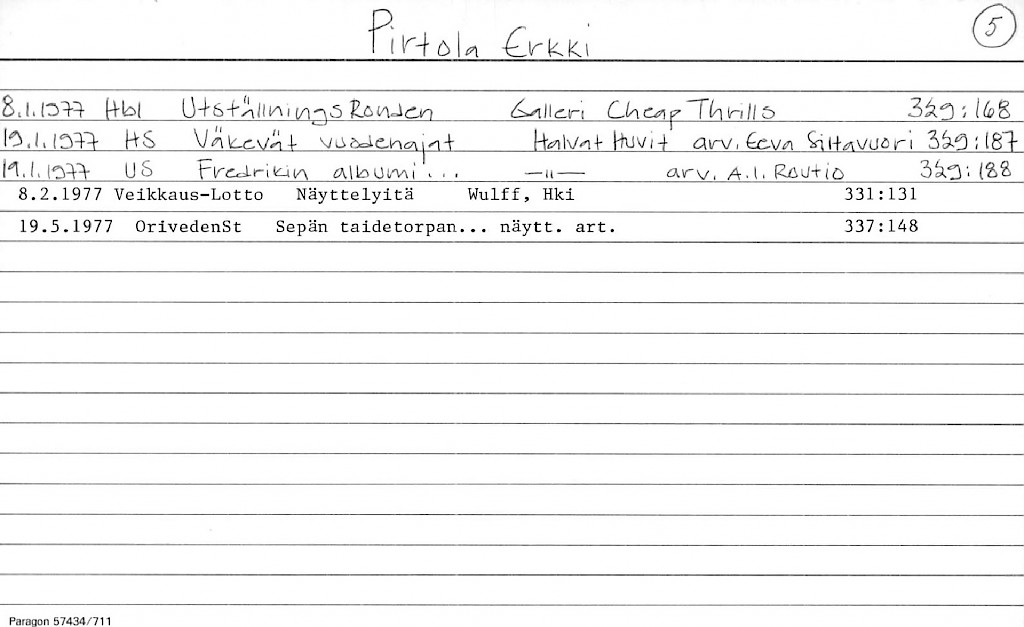 Pirtola Erkki 5
8.1.1977 Hbl Utställningsronden Galleri Cheap Thrills 329:168
19.1.1977 HS Väkevät vuodenajat Halvat Huvit arv. Eeva Siltavuori 329:187
19.1.1977 US Fredrikin albumi... —"— arv. A.I. Routio 329:188
8.2.1977 Veikkaus-Lotto Näyttelyitä Wulff, Hki 331:131
19.5.1977 OrivedenSt Sepän taidetorpan... näytt. art. 337:148
Paragon 57434/711